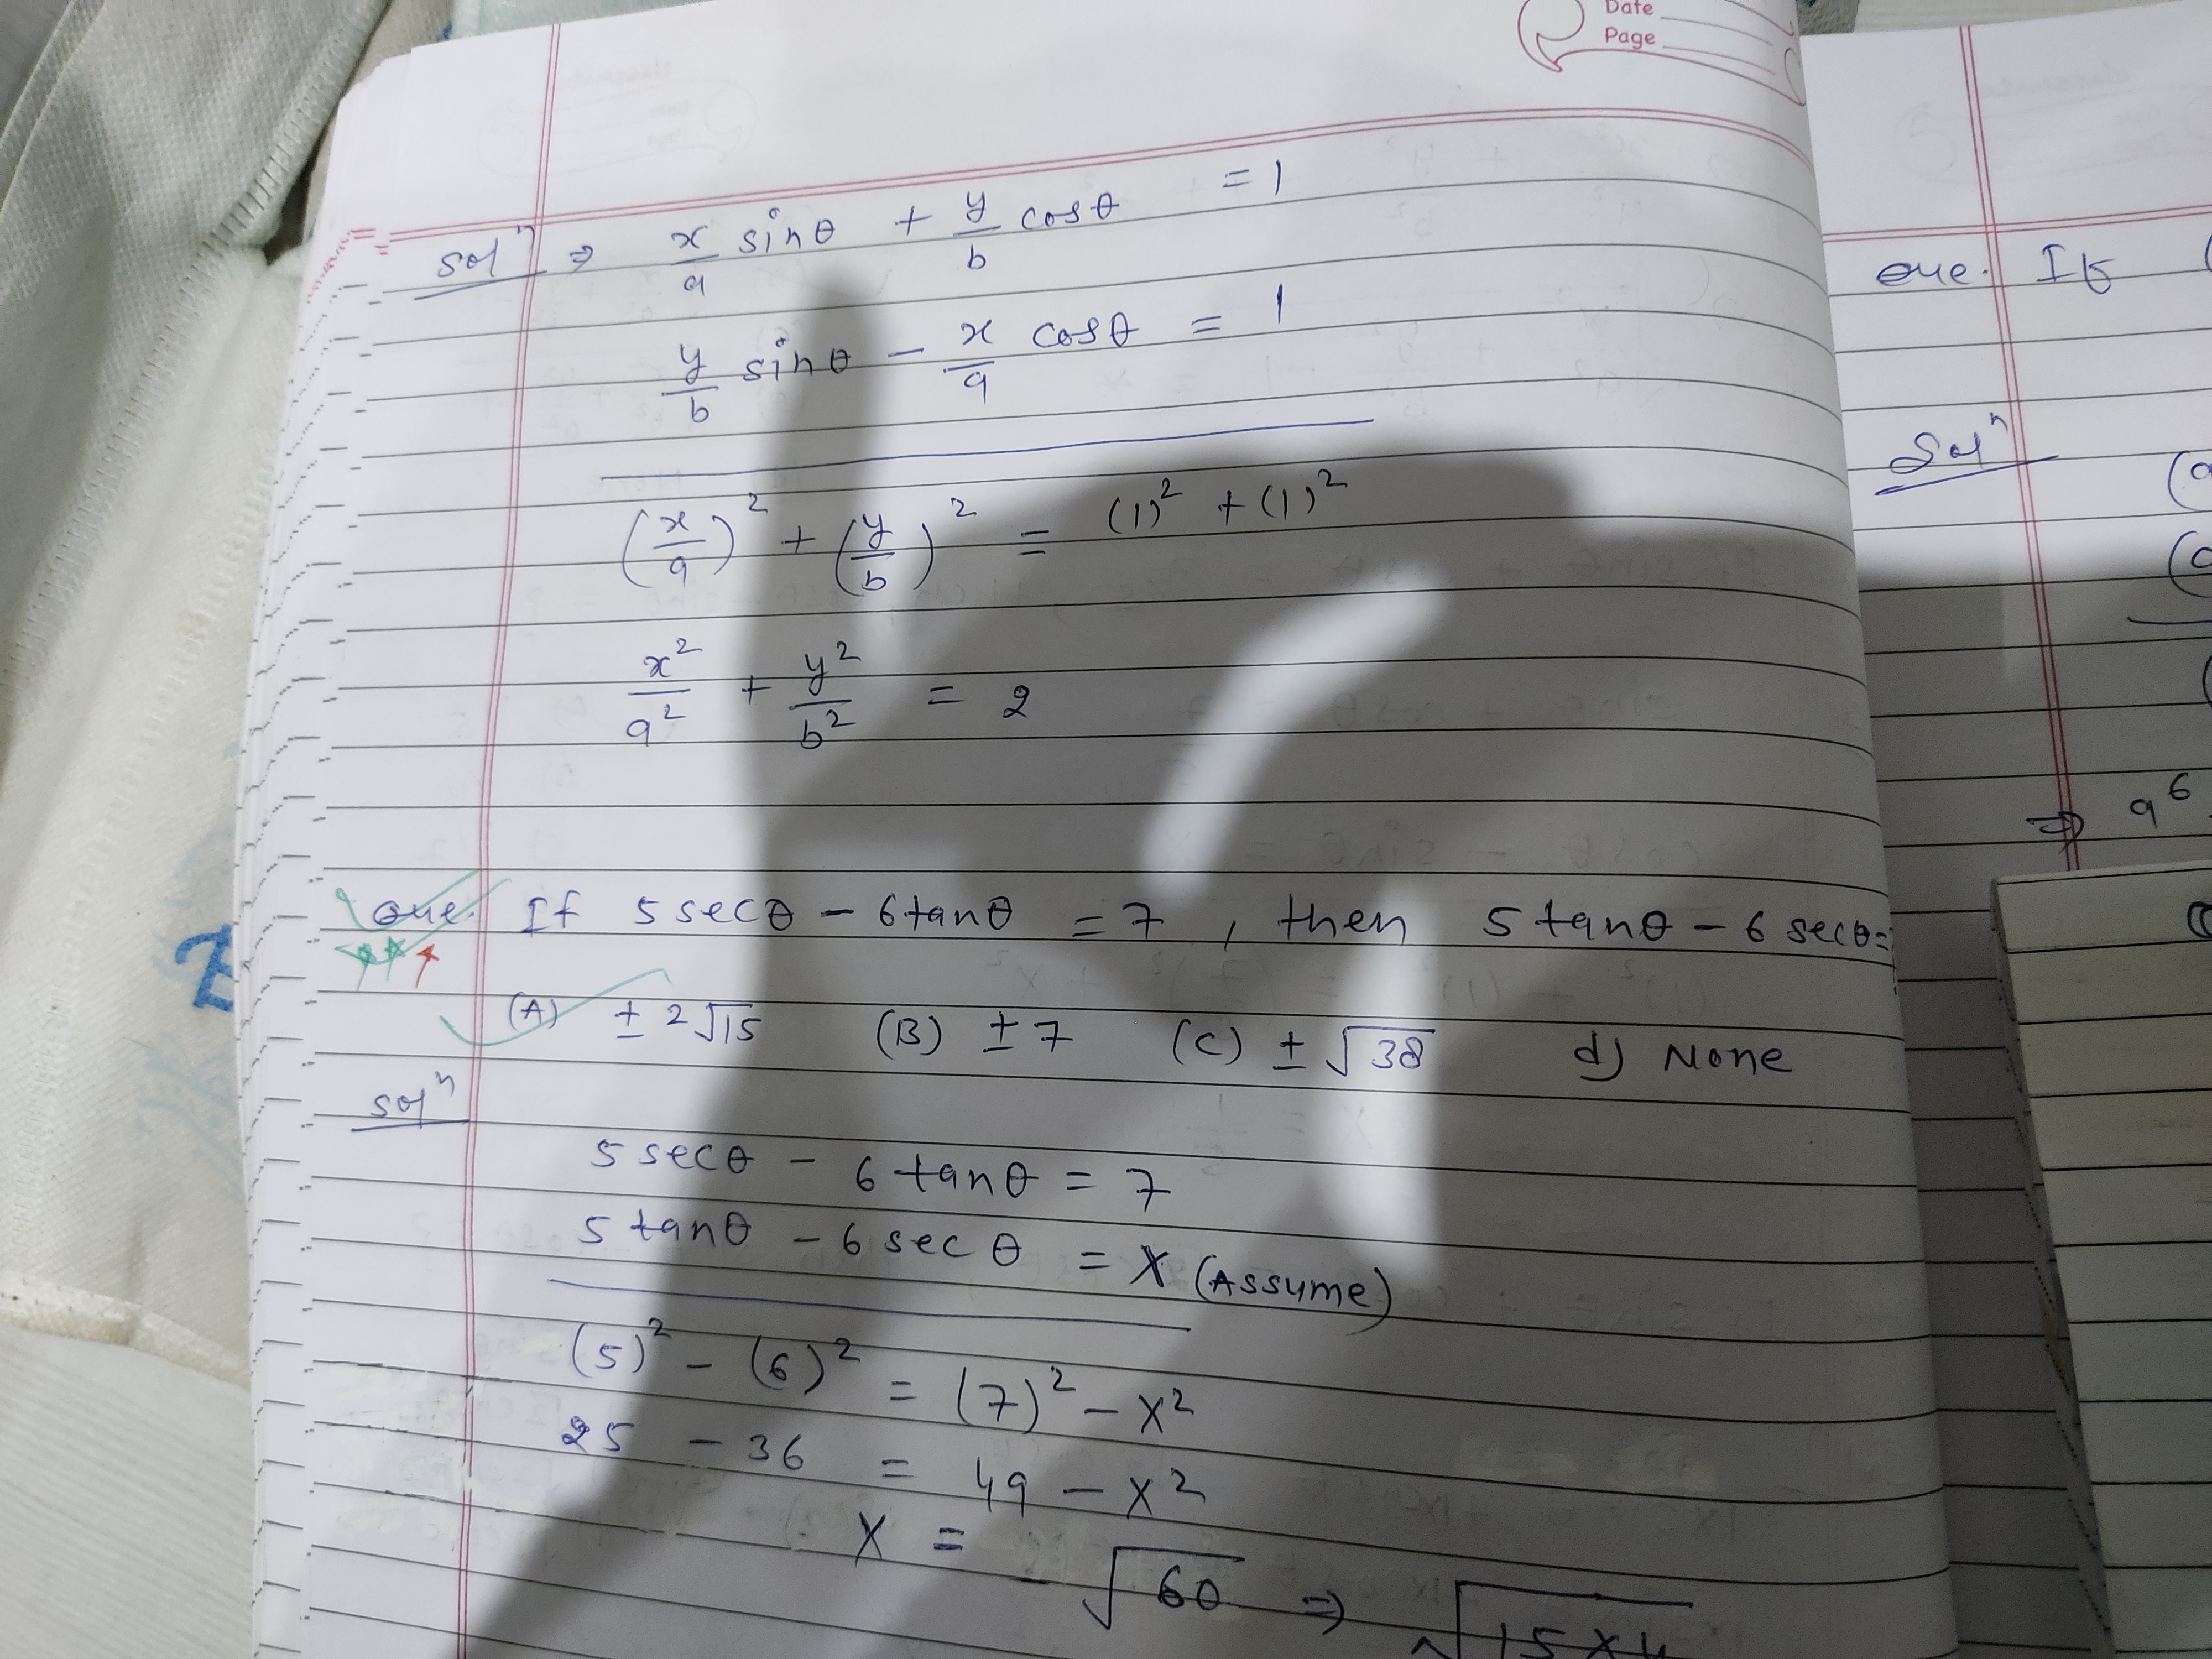 Date
Page
Solⁿ ⇒ x/a sinθ + y/b cosθ = 1
y/b sinθ − x/a cosθ = 1
(x/a)² + (y/b)² = (1)² + (1)²
x²/a² + y²/b² = 2
Que. If 5 secθ − 6 tanθ = 7, then 5 tanθ − 6 secθ =
(A) ± 2√15 (B) ± 7 (C) ± √38 d) None
Solⁿ
5 secθ − 6 tanθ = 7
5 tanθ − 6 sec θ = X (Assume)
(5)² − (6)² = (7)² − X²
25 − 36 = 49 − X²
X = √60 ⇒ √15×4
Que. If (
Solⁿ
⇒ a⁶